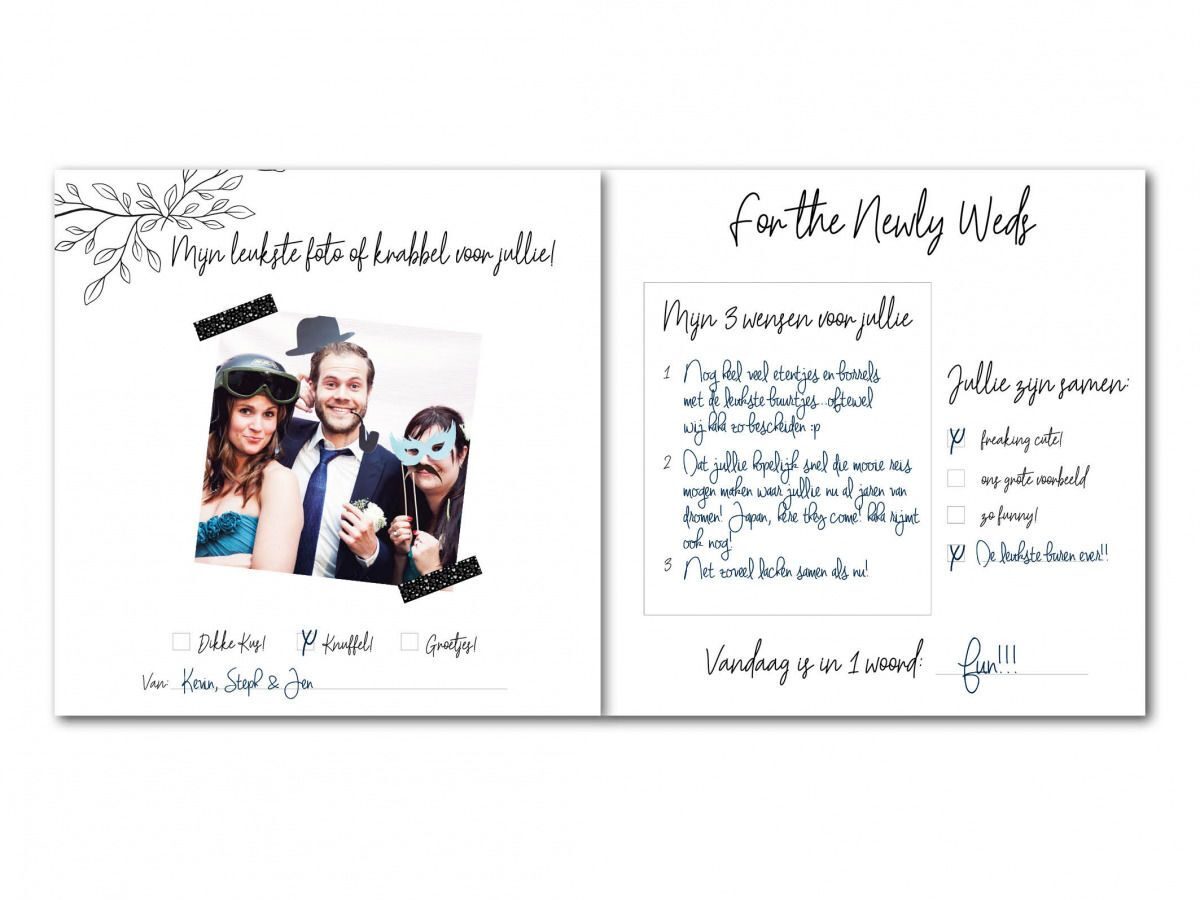 Mijn leukste foto of krabbel voor jullie!
Dikke Kus!
Knuffel!
Groetjes!
Van: Kevin, Steph & Jen
For the Newly Weds
Mijn 3 wensen voor jullie
1 Nog heel veel etentjes en borrels
met de leukste buurtjes...oftewel
wij haha zo bescheiden :p
2 Dat jullie hopelijk snel die mooie reis
mogen maken waar jullie nu al jaren van
dromen! Japan, here they come! haha rijmt
ook nog!
3 Net zoveel lachen samen als nu!
Jullie zijn samen:
freaking cute!
ons grote voorbeeld
zo funny!
De leukste buren ever!!
Vandaag is in 1 woord: fun!!!